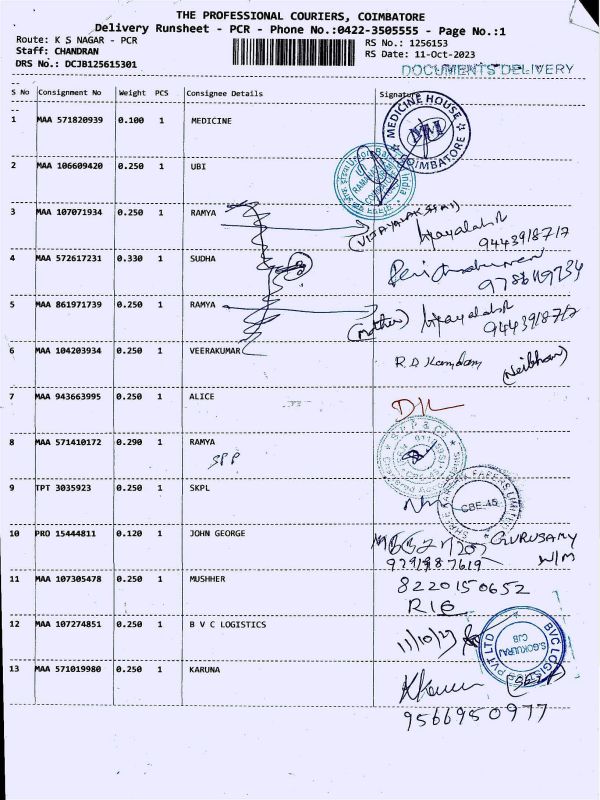 THE PROFESSIONAL COURIERS, COIMBATORE
Delivery Runsheet - PCR - Phone No.:0422-3505555 - Page No.:1
Route: K S NAGAR - PCR
Staff: CHANDRAN
DRS No.: DCJB125615301
RS No.: 1256153
RS Date: 11-Oct-2023
DOCUMENTS DELIVERY
S No Consignment No Weight PCS Consignee Details Signature
1 MAA 571820939 0.100 1 MEDICINE
MEDICINE HOUSE
MM
COIMBATORE
2 MAA 106609420 0.250 1 UBI
3 MAA 107071934 0.250 1 RAMYA
9443918717
4 MAA 572617231 0.330 1 SUDHA
5 MAA 861971739 0.250 1 RAMYA
(mother)
9443918717
6 MAA 104203934 0.250 1 VEERAKUMAR
7 MAA 943663995 0.250 1 ALICE
D/L
8 MAA 571410172 0.290 1 RAMYA
SPP
S.P.P & Co
9 TPT 3035923 0.250 1 SKPL
CBE-45
10 PRO 15444811 0.120 1 JOHN GEORGE
GURUSAMY
W/M
11 MAA 107305478 0.250 1 MUSHHER
8220150652
12 MAA 107274851 0.250 1 B V C LOGISTICS
11/10/23
BVC LOGISTICS PVT LTD
S.GOKULRAJ
CJB
13 MAA 571019980 0.250 1 KARUNA
9566950977